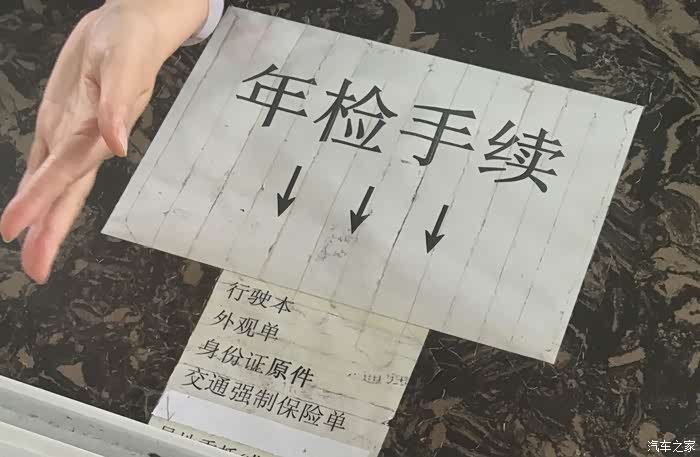 年检手续
↓ ↓ ↓
行驶本
外观单
身份证原件
交通强制保险单
汽车之家